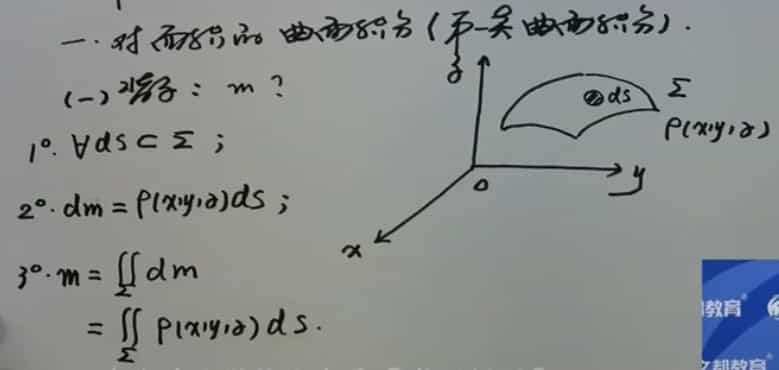 一. 对面积的曲面积分(第一类曲面积分).
(一) 引子: m?
1°. ∀ds⊂Σ;
2°. dm=ρ(x,y,z)ds;
3°. m=∬_Σ dm
=∬_Σ ρ(x,y,z)ds.
z
ds
Σ
ρ(x,y,z)
o
y
x
教育
文都教育